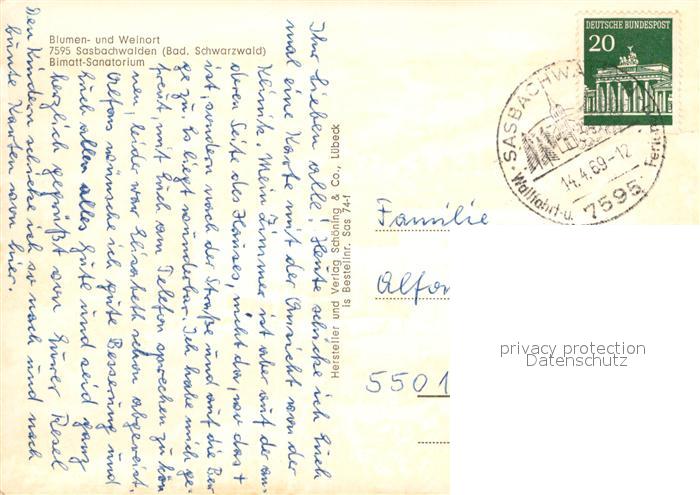 Blumen- und Weinort
7595 Sasbachwalden (Bad. Schwarzwald)
Bimatt-Sanatorium
Ihr Lieben alle! Heute schicke ich Euch
mal eine Karte mit der Ansicht von der
Klinik. Mein Zimmer ist aber auf der an-
deren Seite des Hauses, nicht da, wo das +
ist, sondern nach der Straße und auf die Ber-
ge zu. Es liegt wunderbar. Ich habe mich ge-
freut, mit Euch am Telefon sprechen zu kön-
nen, leider war Elisabeth schon abgereist.
Alfons wünsche ich gute Besserung und
Euch allen alles Gute und seid ganz
herzlich gegrüßt von Eurer Resel
Den Kindern schicke ich so nach und nach
bunte Karten von hier.
Hersteller und Verlag Schöning & Co., Lübeck
Is Bestellnr. Sas 74-1
DEUTSCHE BUNDESPOST
20
SASBACHWA
14.4.69-12
7595
Wallfahrt- u.
Familie
Alfon
5501
privacy protection
Datenschutz